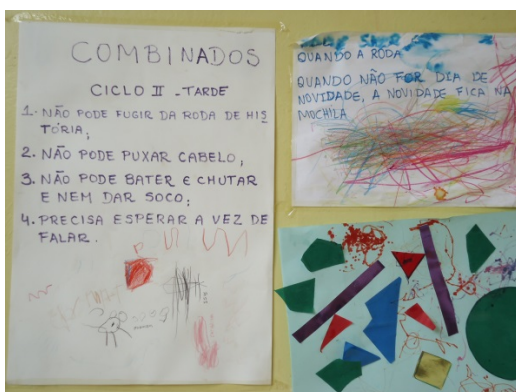 COMBINADOS
CICLO II - TARDE
1. NÃO PODE FUGIR DA RODA DE HIS
TÓRIA;
2. NÃO PODE PUXAR CABELO;
3. NÃO PODE BATER E CHUTAR
E NEM DAR SOCO;
4. PRECISA ESPERAR A VEZ DE
FALAR.
QUANDO A RODA
QUANDO NÃO FOR DIA DE
NOVIDADE, A NOVIDADE FICA NA
MOCHILA